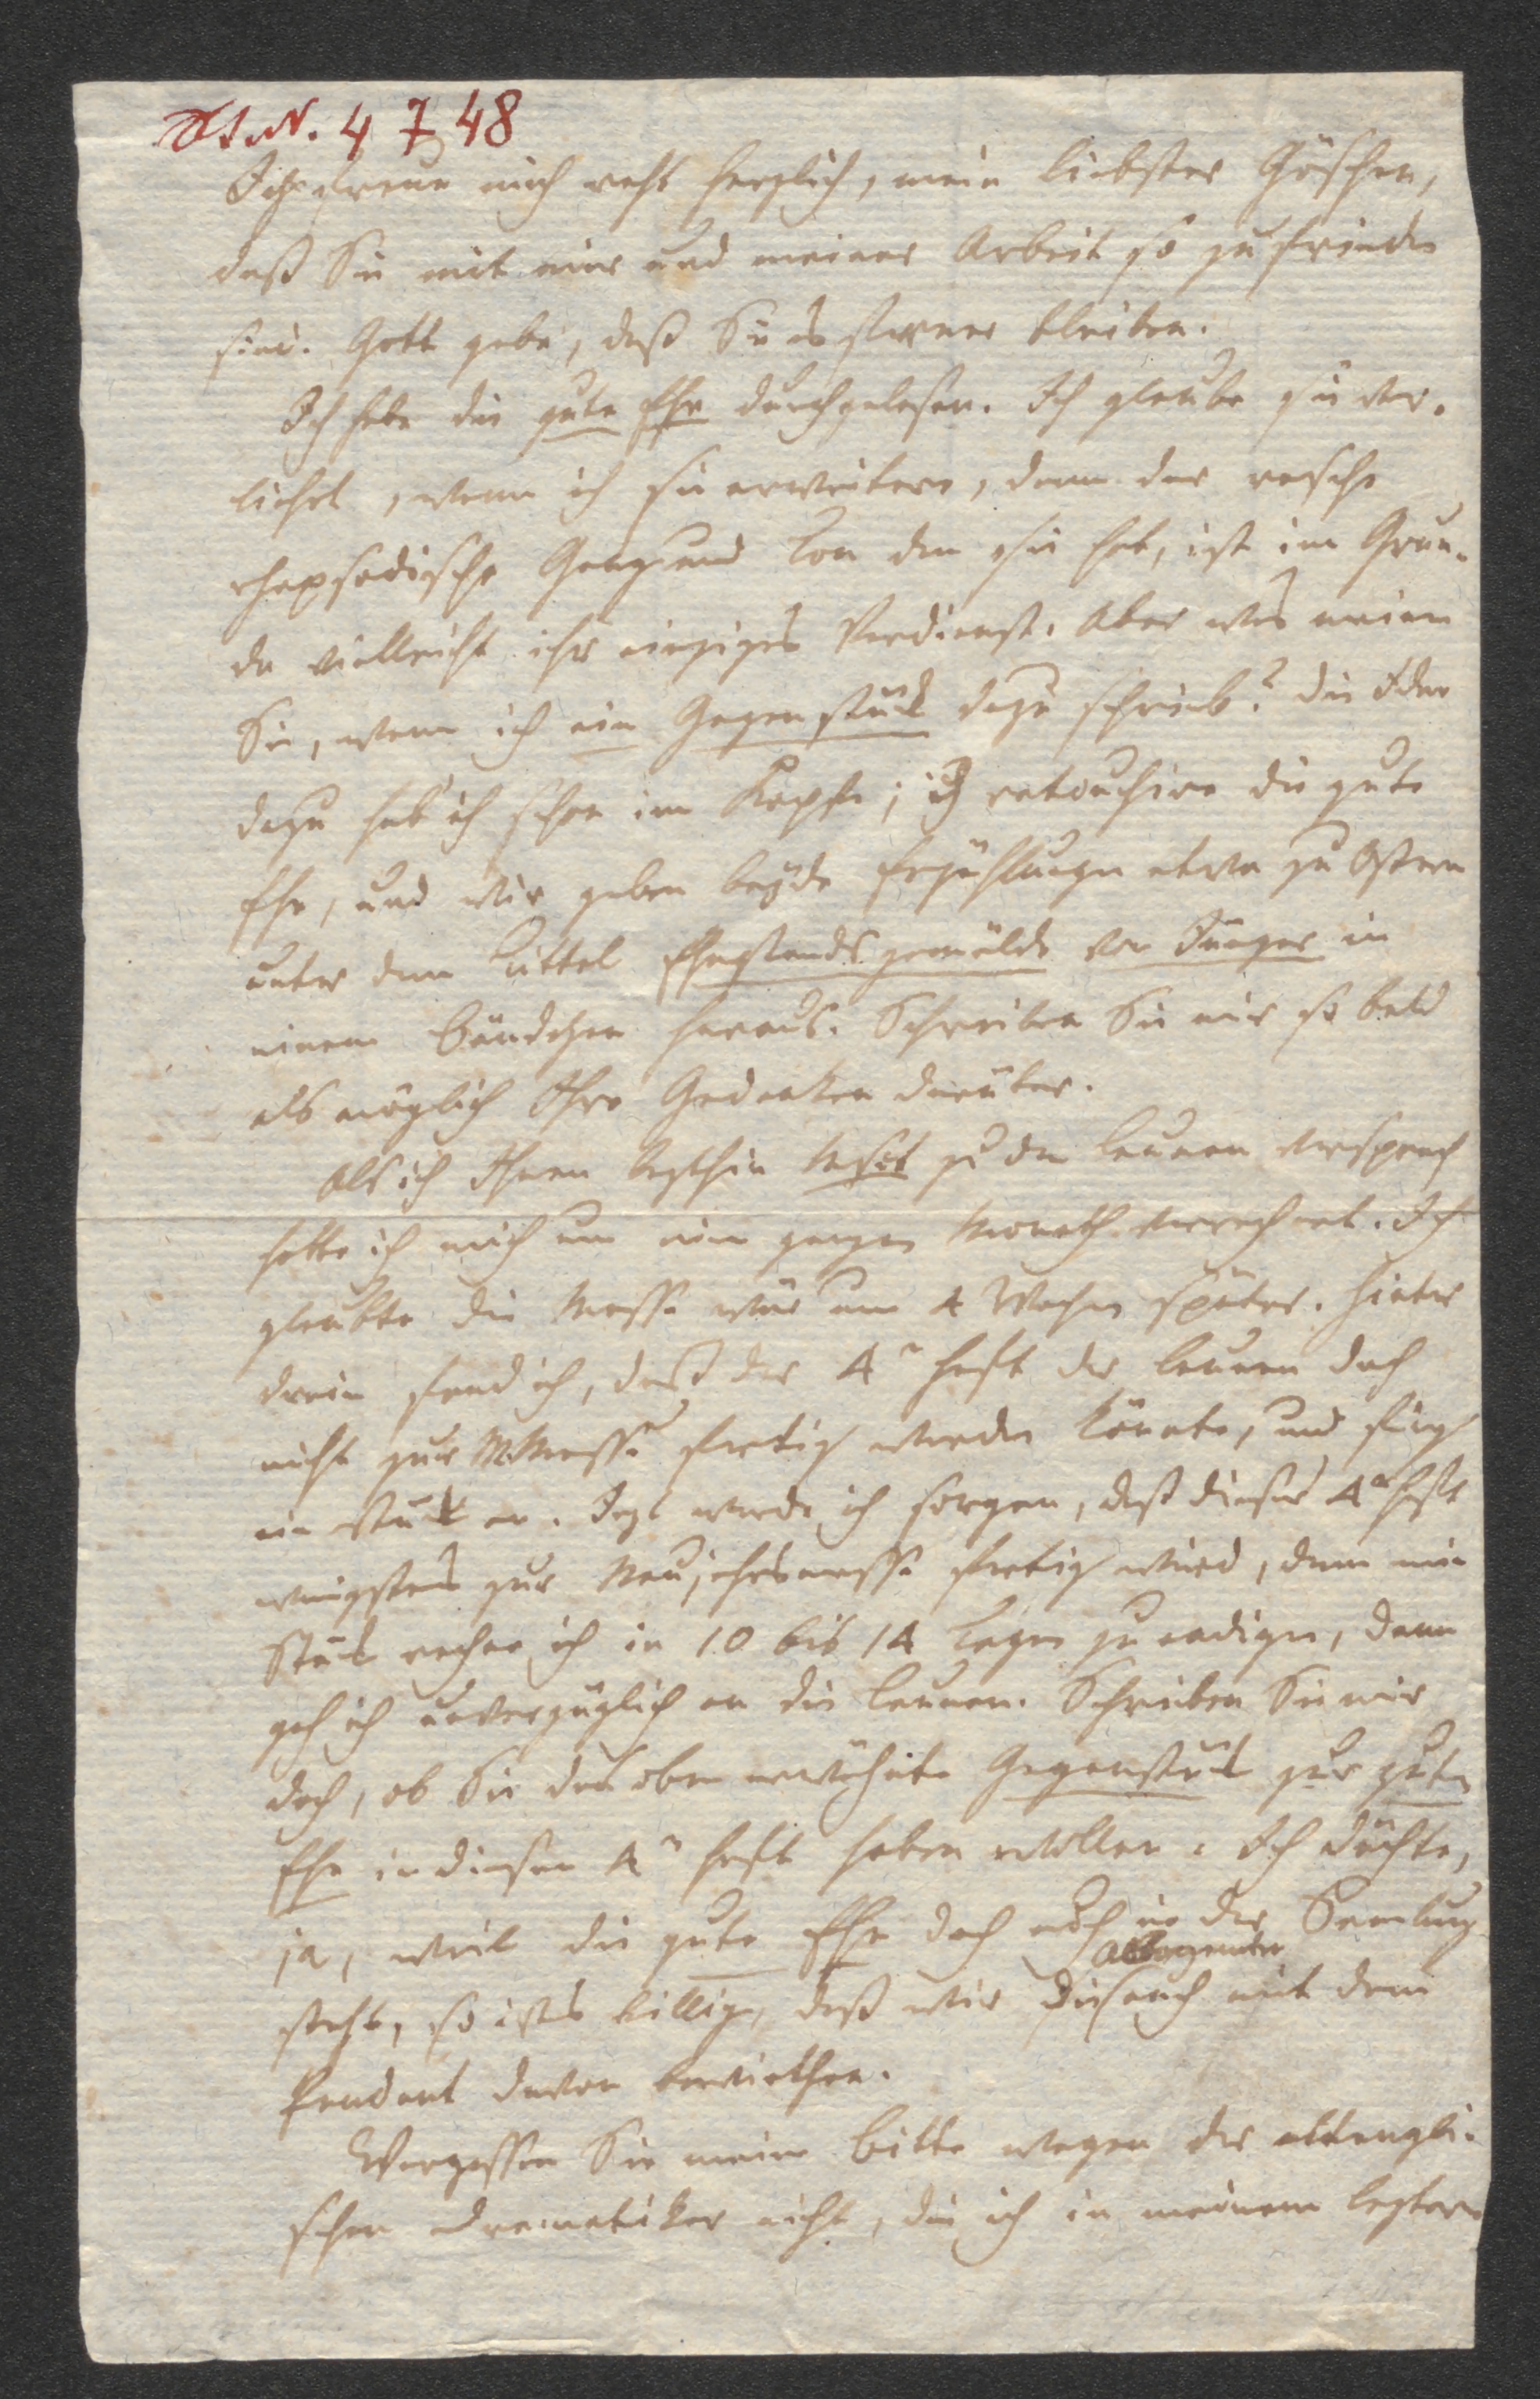 4748
Ich freue mich recht herzlich, mein liebster Göschen,
daß Sie mit mir und meiner Arbeit so zufrieden
sind. Gott gebe, daß Sie es ferner bleiben.
Ich habe die gute Ehe durchgelesen. Ich glaube sie ver-
liehrt, wenn ich sie erweitere, denn der rasche
rhapsodische Gang und Ton den sie hat, ist im Grun-
de vielleicht ihr einziges Verdienst. Aber was meinen
Sie, wenn ich ein Gegenstück dazu schrieb? Die Idee
dazu hab ich schon im Kopfe; ich retouchire die gute
Ehe, und wir geben beyde Erzählungen etwa zu Ostern
unter dem Tittel Ehestandsgemälde von Jünger in
einem Bändchen heraus. Schreiben Sie mir so bald
als möglich Ihre Gedanken darüber.
Als ich Ihnen lezthin Mspt zu den Launen versprach
hatte ich mich um einen ganzen Monath verrechnet. Ich
glaubte die Messe wär um 4 Wochen später. Hinter
drein fand ich, daß der 4r Heft der Launen doch
nicht zur MMesse fertig werden könnte, und fing
ein Stück an. Jezt werde ich sorgen, daß dieser 4te Heft
wenigstens zur Neujahrsmesse fertig wird, denn mein
Stück rechne ich in 10 bis 14 Tagen zu endigen, dann
geh ich unverzüglich an die Launen. Schreiben Sie mir
doch, ob Sie das oben erwähnte Gegenstück zur guten
Ehe in diesen 4n Heft haben wollen. Ich dächte,
ja, weil die gute Ehe doch auch in der Samlung
steht, so ists billig, daß wir die auch mit dem
Pendant davon bewirthen.
Vergessen Sie meine Bitte wegen der altengli-
schen Dramatiker nicht, die ich in meinem leztern